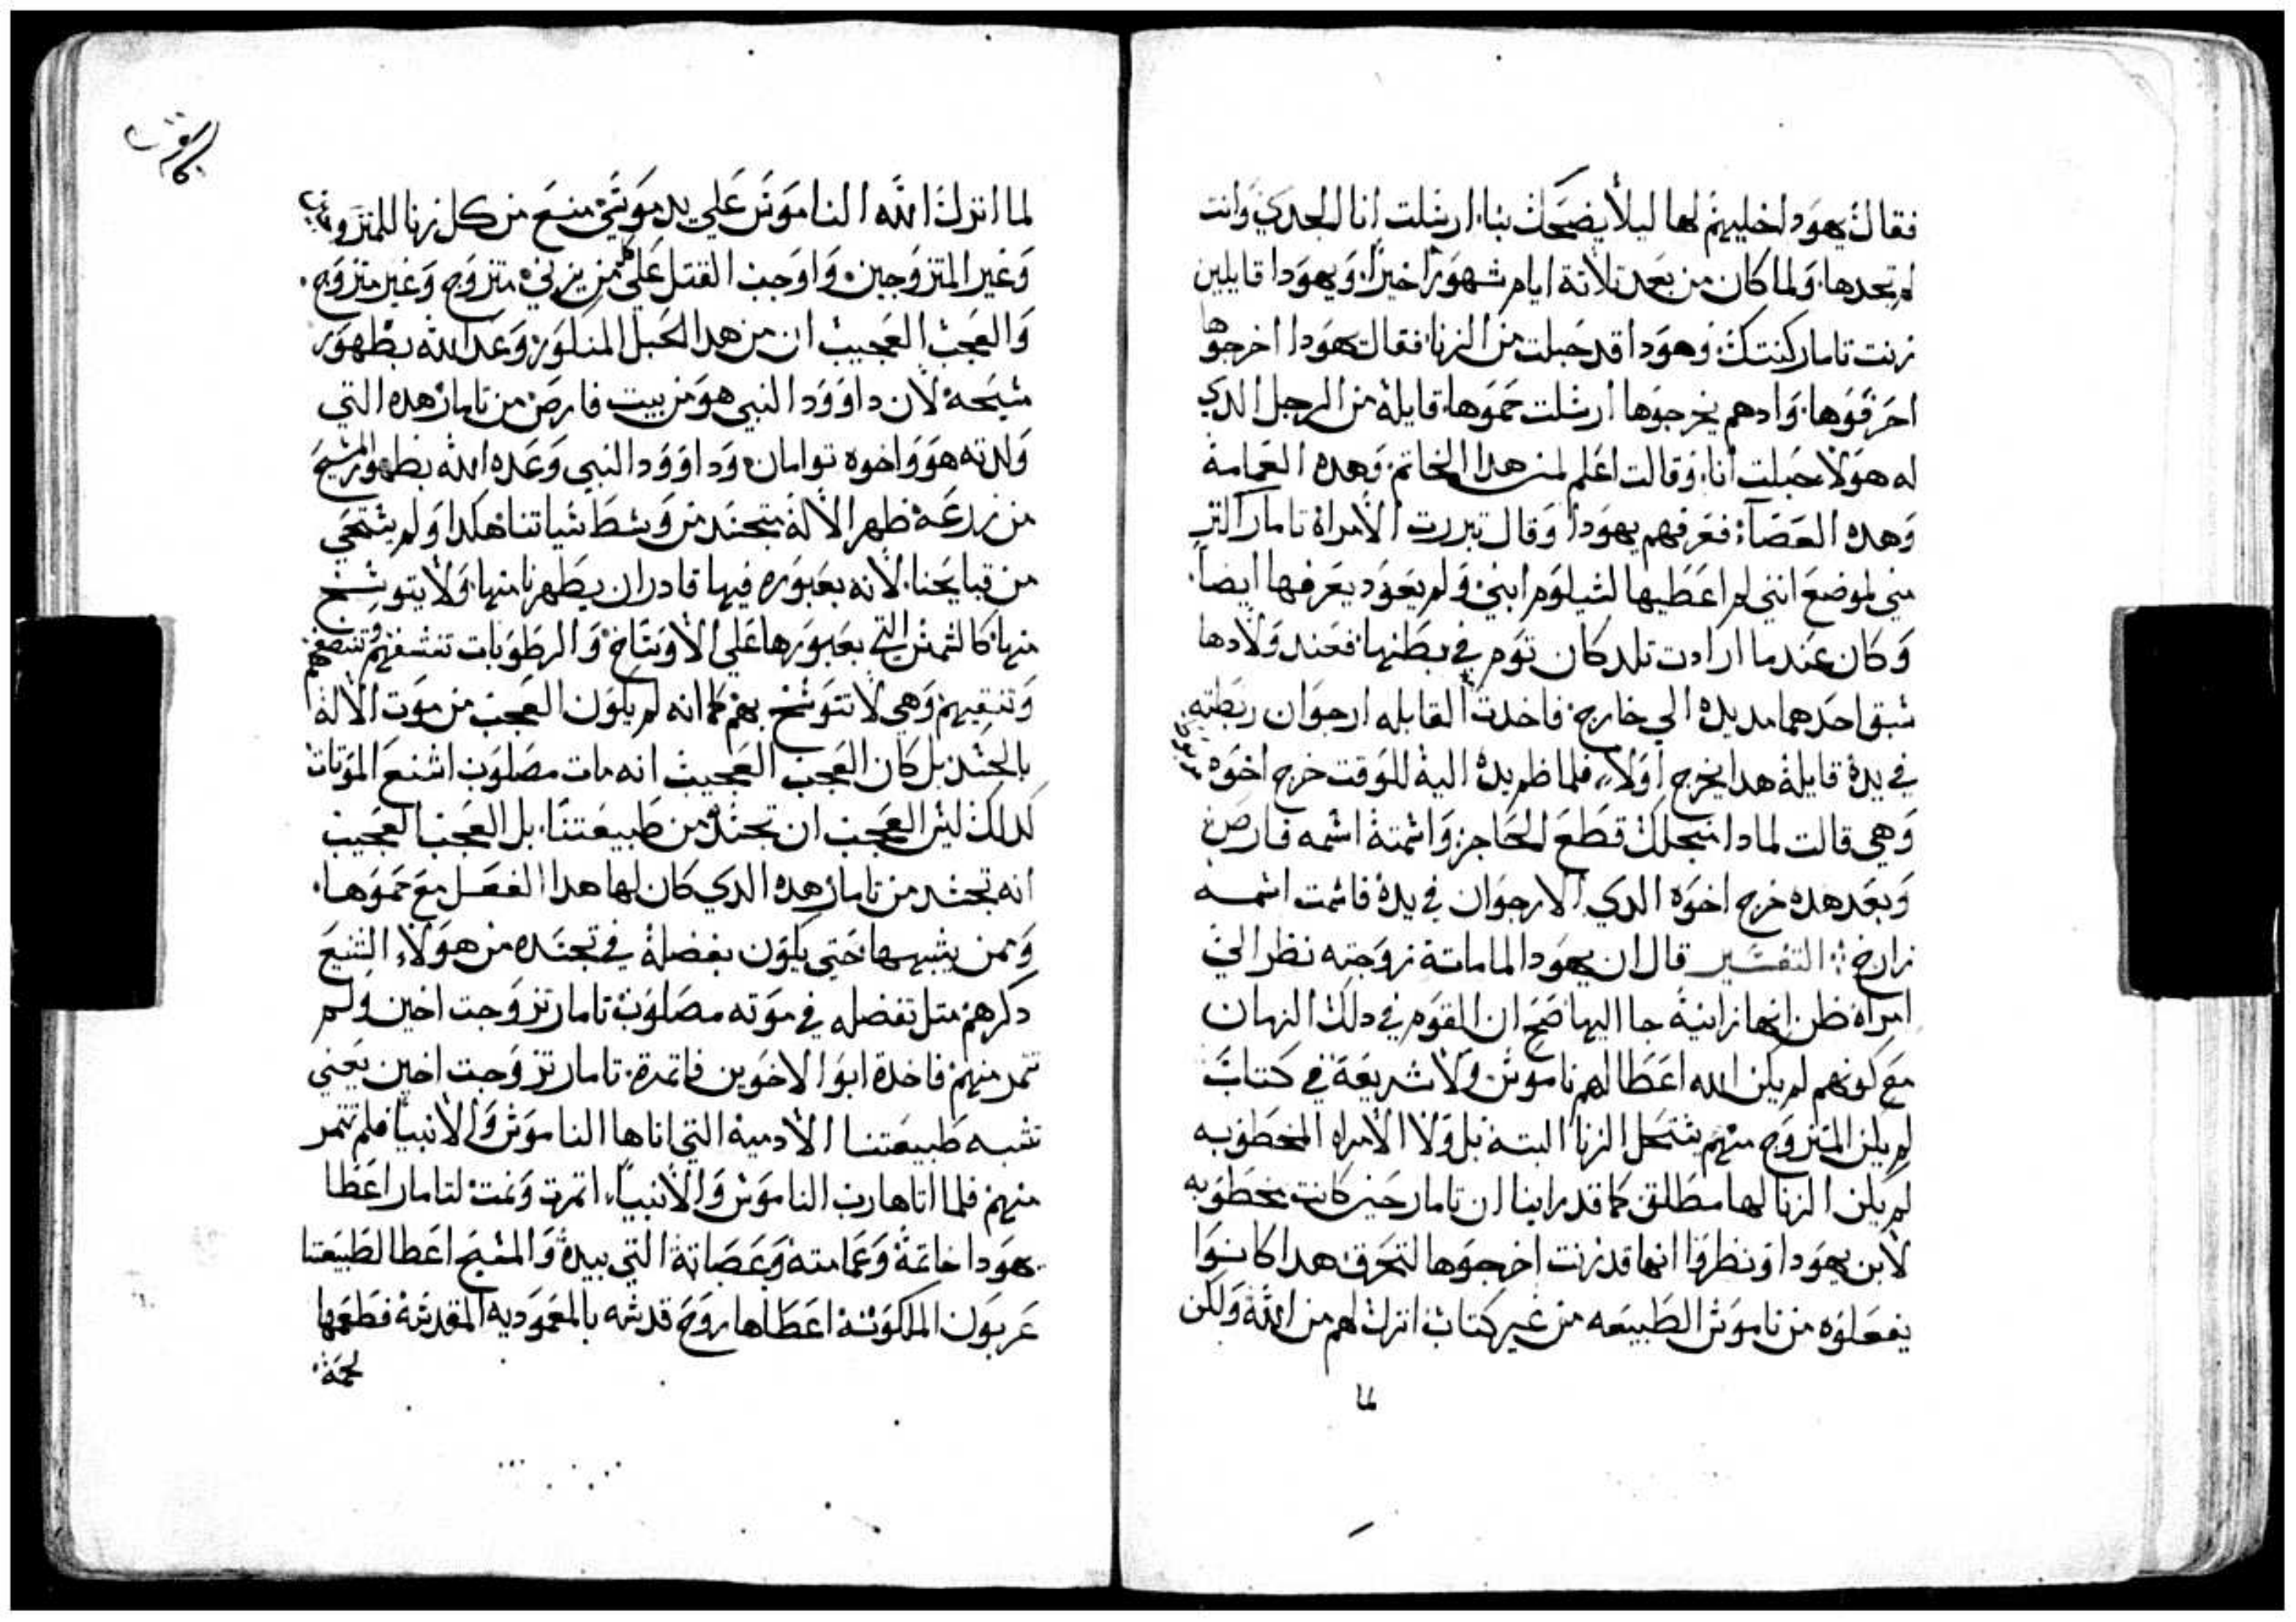 فقال يهودا خليهم لها ليلا يضحك بنا ارسلت انا الجدي وانت
لم تجدها ولما كان من بعد تلاتة ايام شهور اخبرا ويهودا قايلين
زنت تامار كنتك وهودا قد حبلت من الزنا فقال يهودا اخرجوها
احرقوها وادهم يخرجوها ارسلت حموها قايلة من الرجل الدي
له هولاء حبلت انا وقالت اعلم لمن هدا الخاتم وهده العمامة
وهده العصاة فعرفهم يهودا وقال تبررت الامراة تامار اكتر
مني لموضع انني لم اعطيها لشيلوم ابني ولم يعود يعرفها ايضا
وكان عندما ارادت تلد كان توم في بطنها فعند ولادها
سبق احدهما مد يده الي خارج فاخدت القابله ارجوان ربطته
في يده قايلة هدا يخرج اولا فلما ضم يده اليه للوقت خرج اخوه
وهي قالت لمادا انجلك قطع الحاجز واسمته اسمه فارص
وبعد هده خرج اخوه الدي الارجوان في يده فاسمت اسمه
زارخ التفسير قال ان يهودا لما ماتة زوجته نظر الي
امراة ظن انها زانية جا اليها صح ان القوم في دلك الزمان
مع كونهم لم يكن الله اعطا لهم ناموس ولا شريعة في كتاب
لم يكن المتزوج منهم يستحل الزنا البتة بل ولا الامراه المخطوبه
لم يكن الزنا لها مطلق كما قد راينا ان تامار حين كانت مخطوبه
لابن يهودا ونظروا انها قد زنت اخرجوها لتحرق هدا كانوا
يفعلوه من ناموس الطبيعه من غير كتاب انزل لهم من الله ولكن
لما
لما انزل الله الناموس علي يد موسي منع من كل زنا للمتزوجين
وغير المتزوجين واوجب القتل علي كلمن يزني متزوج وغير متزوج
والعجب العجيب ان من هدا الحبل المنلور وعد الله بظهور
مسيحه لان داوود النبي هو من بيت فارص من تامار هده التي
ولدته هو واخوه توامان وداوود النبي وعده الله بظهور المسيح
من زرعه ظهر الاله متجسد من وسط سياتنا هكدا ولم يستحي
من قبايحنا لانه بعبوره فيها قادر ان يطهرنا منها ولا يتوسخ
منها كالشمس التي بعبورها علي الاوساخ والرطوبات تنشفهم وتنضفهم
وتنقيهم وهي لا تتوسخ بهم كما انه لم يكون العجب من موت الاله
بالجسد بل كان العجب العجيب انه مات مصلوب اشنع الموتات
كدلك ليس العجب ان تجسد من طبيعتنا بل العجب العجيب
انه تجسد من تامار هده الدي كان لها هدا الفعل مع حموها
وممن يشبهها حتي يكون بفضلة في تجسده من هولاء الشنع
دكرهم متل تفضله في موته مصلوب تامار تزوجت اخين ولم
تتمر منهم فاخدة ابو الاخوين فاتمرة تامار تزوجت اخين يعني
تشبه طبيعتنا الادمية التي اتاها الناموس والانبيا فلم تتمر
منهم فلما اتاها رب الناموس والانبياء اتمرت ونمت لتامار اعطا
يهودا خاتمة وعمامته وعصاته التي بيده والمسيح اعطا لطبيعتنا
عربون الملكوتة اعطاها روح قدسه بالمعموديه المقدسة فطعمها
لحمة